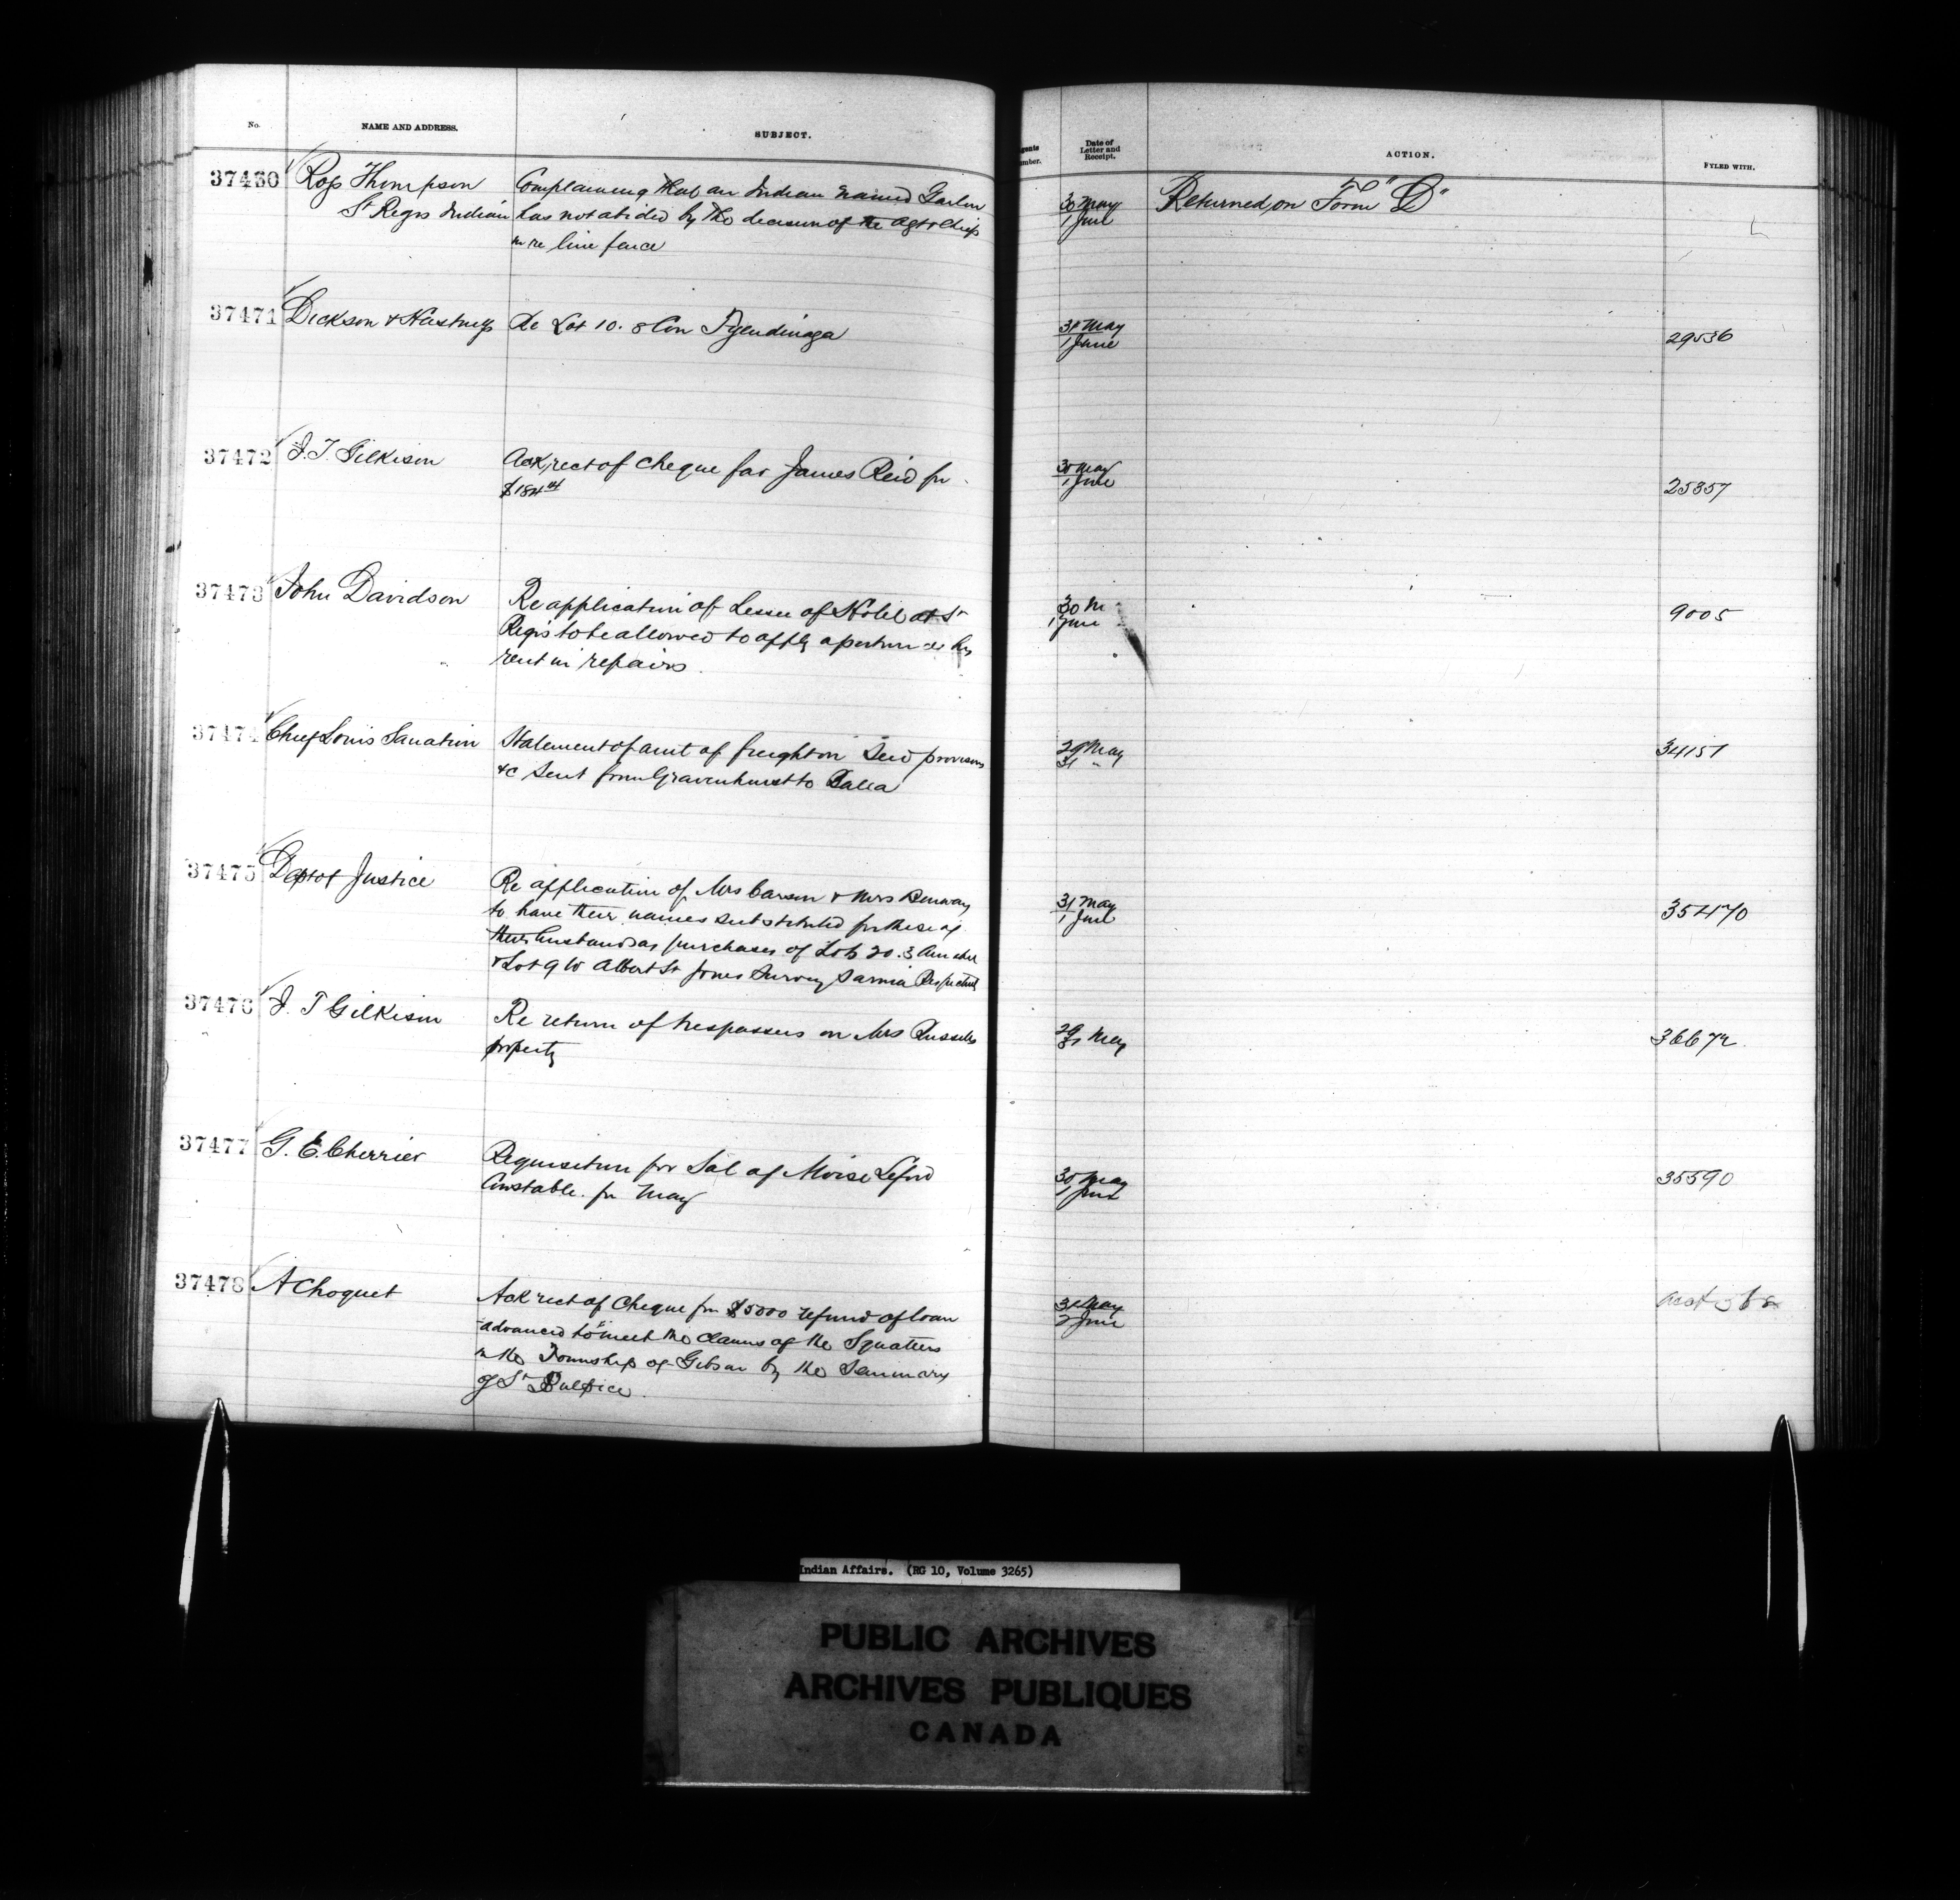 No. NAME AND ADDRESS. SUBJECT. Date of Letter and Receipt. ACTION. FYLED WITH.
37430 Ross Thompson Complaining that an Indian named Garlow 30 May Returned on Form "D"
St Regis Indian has not abided by the decision of the Agt & Chiefs 1 June
in re line fence
37471 Dickson & Hastings Re Lot 10. 8 Con Tyendinaga 31 May 29536
1 June
37472 J. T. Gilkison Ack rect of cheque for James Reid for 30 May 25357
$184 1 June
37473 John Davidson Re application of Lessee of Hotel at St 30 M 9005
Regis to be allowed to apply a portion of his 1 June
rent in repairs.
37474 Chief Louis Sanation Statement of amt of freight on Seed provisions 29 May 34151
&c sent from Gravenhurst to Bala 31 "
37475 Dept of Justice Re application of Mrs Carson & Mrs 31 May 35470
to have their names substituted for those of 1 June
their husbands as purchasers of Lot 20. 3
& Lot 9 W Albert St Jones Survey Sarnia Respectively
37476 J. T Gilkison Re return of trespassers on Mrs Russells 29 May 36672
property 31
37477 G. E. Cherrier Requisition for Sal of Moise Lefort 30 May 35590
Constable. for May 1 June
37478 A Choquet Ack rect of Cheque for $5000 refund of loan 31 May
advanced to meet the claims of the Squatters 2 June
in the Township of Gibson by the Seminary
of St Sulpice.
Indian Affairs. (RG 10, Volume 3265)
PUBLIC ARCHIVES
ARCHIVES PUBLIQUES
CANADA